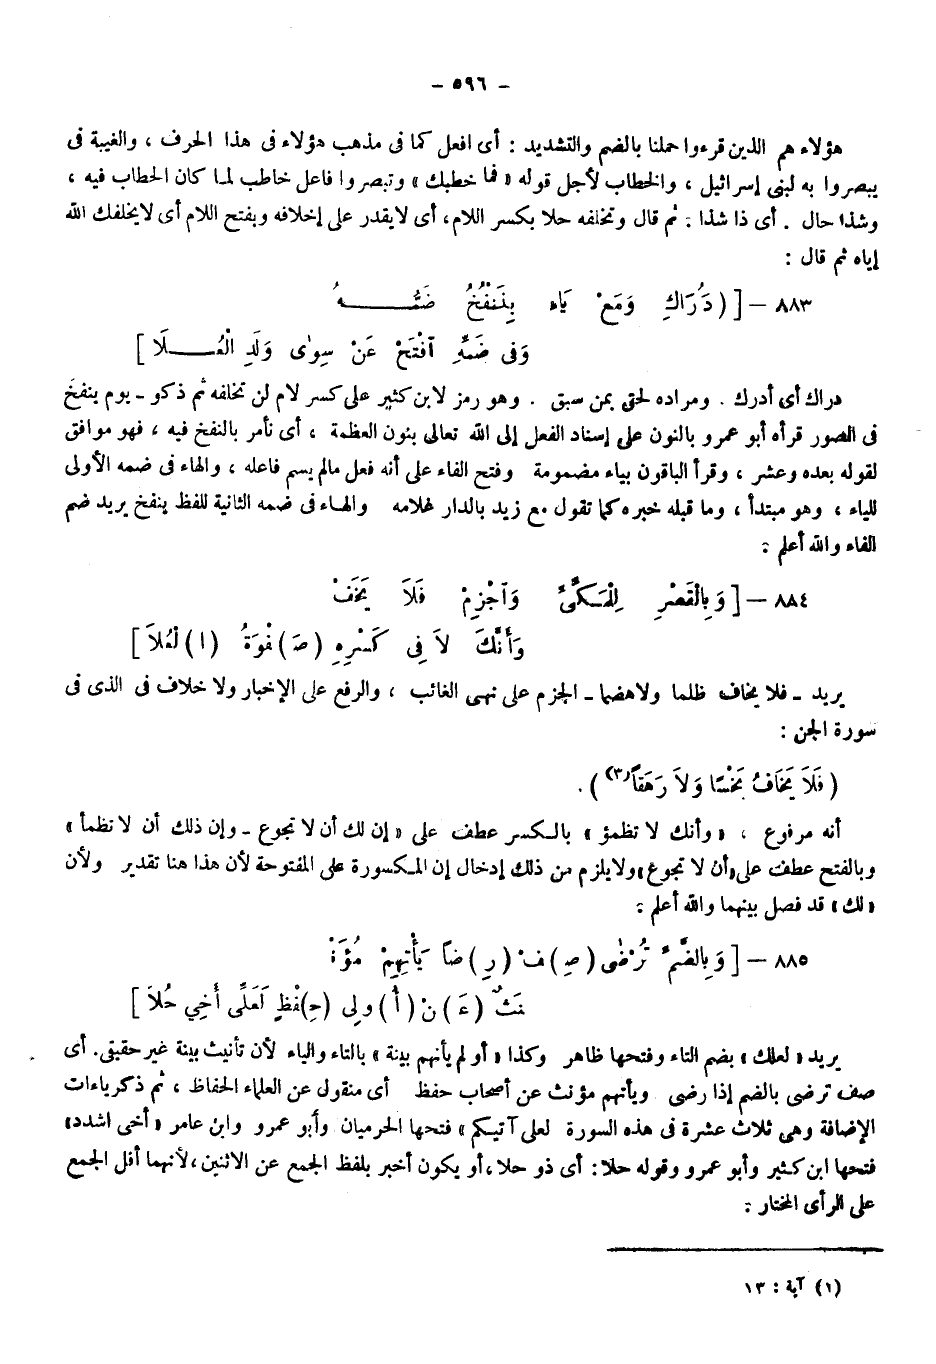 - ٥٩٦ -
هؤلاء هم الذين قرءوا حملنا بالضم والتشديد : أى افعل كما فى مذهب هؤلاء فى هذا الحرف ، والغيبة فى
يبصروا به لبنى إسرائيل ، والخطاب لأجل قوله « فما خطبك » وتبصروا فاعل خاطب لما كان الخطاب فيه ،
وشذا حال . أى ذا شذا : ثم قال وتخلفه حلا بكسر اللام، أى لايقدر على إخلافه وبفتح اللام أى لايخلفك الله
إياه ثم قال :
٨٨٣ - [ ( دَ)رَاكِ وَمَعْ يَاءٍ بِنَنْفُخُ ضَمُّـــــهُ
وَفِى ضَمِّهِ افْتَحْ عَنْ سِوٰى وَلَدِ الْعُـــلَا ]
دراك أى أدرك . ومراده لحق بمن سبق . وهو رمز لابن كثير على كسر لام لن تخلفه ثم ذكو - يوم ينفخ
فى الصور قرأه أبو عمرو بالنون على إسناد الفعل إلى الله تعالى بنون العظمة ، أى نأمر بالنفخ فيه ، فهو موافق
لقوله بعده وعشر ، وقرأ الباقون بياء مضمومة وفتح الفاء على أنه فعل مالم يسم فاعله ، والهاء فى ضمه الأولى
للياء ، وهو مبتدأ ، وما قبله خبره كما تقول مع زيد بالدار غلامه والهاء فى ضمه الثانية للفظ ينفخ يريد ضم
الفاء والله أعلم :
٨٨٤ - [ وَبِالْقَصْرِ لِلْمَكِّىِّ وَاجْزِمْ فَلَا يَخَفْ
وَأَنَّكَ لَا فِى كَسْرِهِ (صَ)فْوَةُ (ا)لْعُلَا ]
يريد - فلا يخاف ظلما ولاهضما - الجزم على نهى الغائب ، والرفع على الإخبار ولا خلاف فى الذى فى
سورة الجن :
( فَلَا يَخَافُ بَخْسًا وَلَا رَهَقًا(٣) ) .
أنه مرفوع ، « وأنك لا تظمؤ » بالكسر عطف على « إن لك أن لا تجوع - وإن ذلك أن لا تظمأ »
وبالفتح عطف على «أن لا تجوع» ولايلزم من ذلك إدخال إن المكسورة على المفتوحة لأن هذا هنا تقدير ولأن
« لك » قد فصل بينهما والله أعلم :
٨٨٥ - [ وَبِالضَّمِّ تُرْضٰى (صِ)فْ (رِ)ضاً يَأْتِهِمْ مُؤَنْ
نَثٌ (عَ)نْ (أُ)ولِى (حِ)فْظٍ لَعَلِّى أَخِي حُلَا ]
يريد « لعلك » بضم التاء وفتحها ظاهر وكذا « أو لم يأتهم بينة » بالتاء والياء لأن تأنيث بينة غير حقيقى. أى
صف ترضى بالضم إذا رضى ويأتهم مؤنث عن أصحاب حفظ أى منقول عن العلماء الحفاظ ، ثم ذكر ياءات
الإضافة وهى ثلاث عشرة فى هذه السورة لعلى آتيكم » فتحها الحرميان وأبو عمرو وابن عامر « أخى اشدد»
فتحها ابن كثير وأبو عمرو وقوله حلا : أى ذو حلا ،أو يكون أخبر بلفظ الجمع عن الاثنين ،لأنهما أقل الجمع
على الرأى المختار :
(١) آية : ١٣